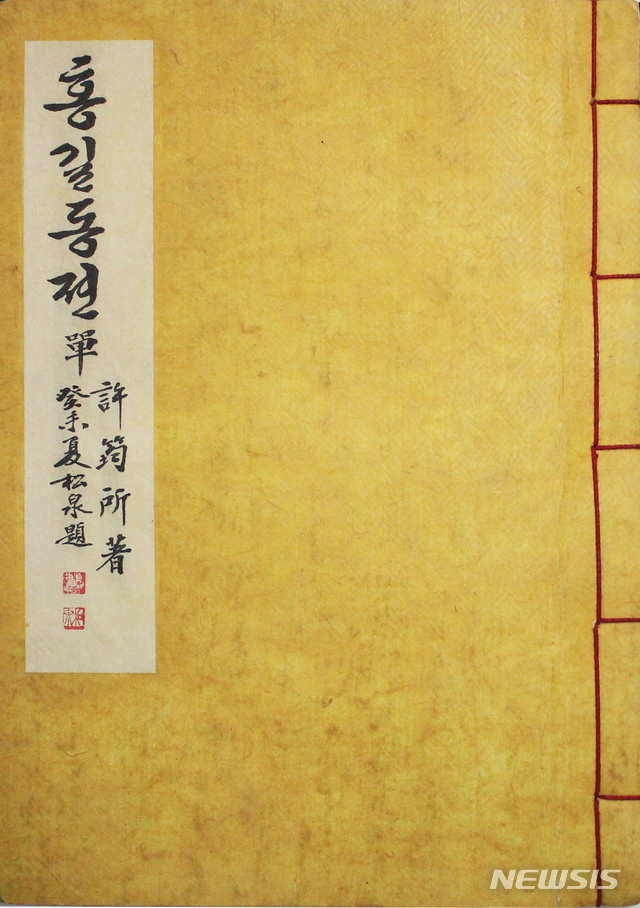 홍길동전 單
許筠所著
癸未夏松泉題
NEWSIS